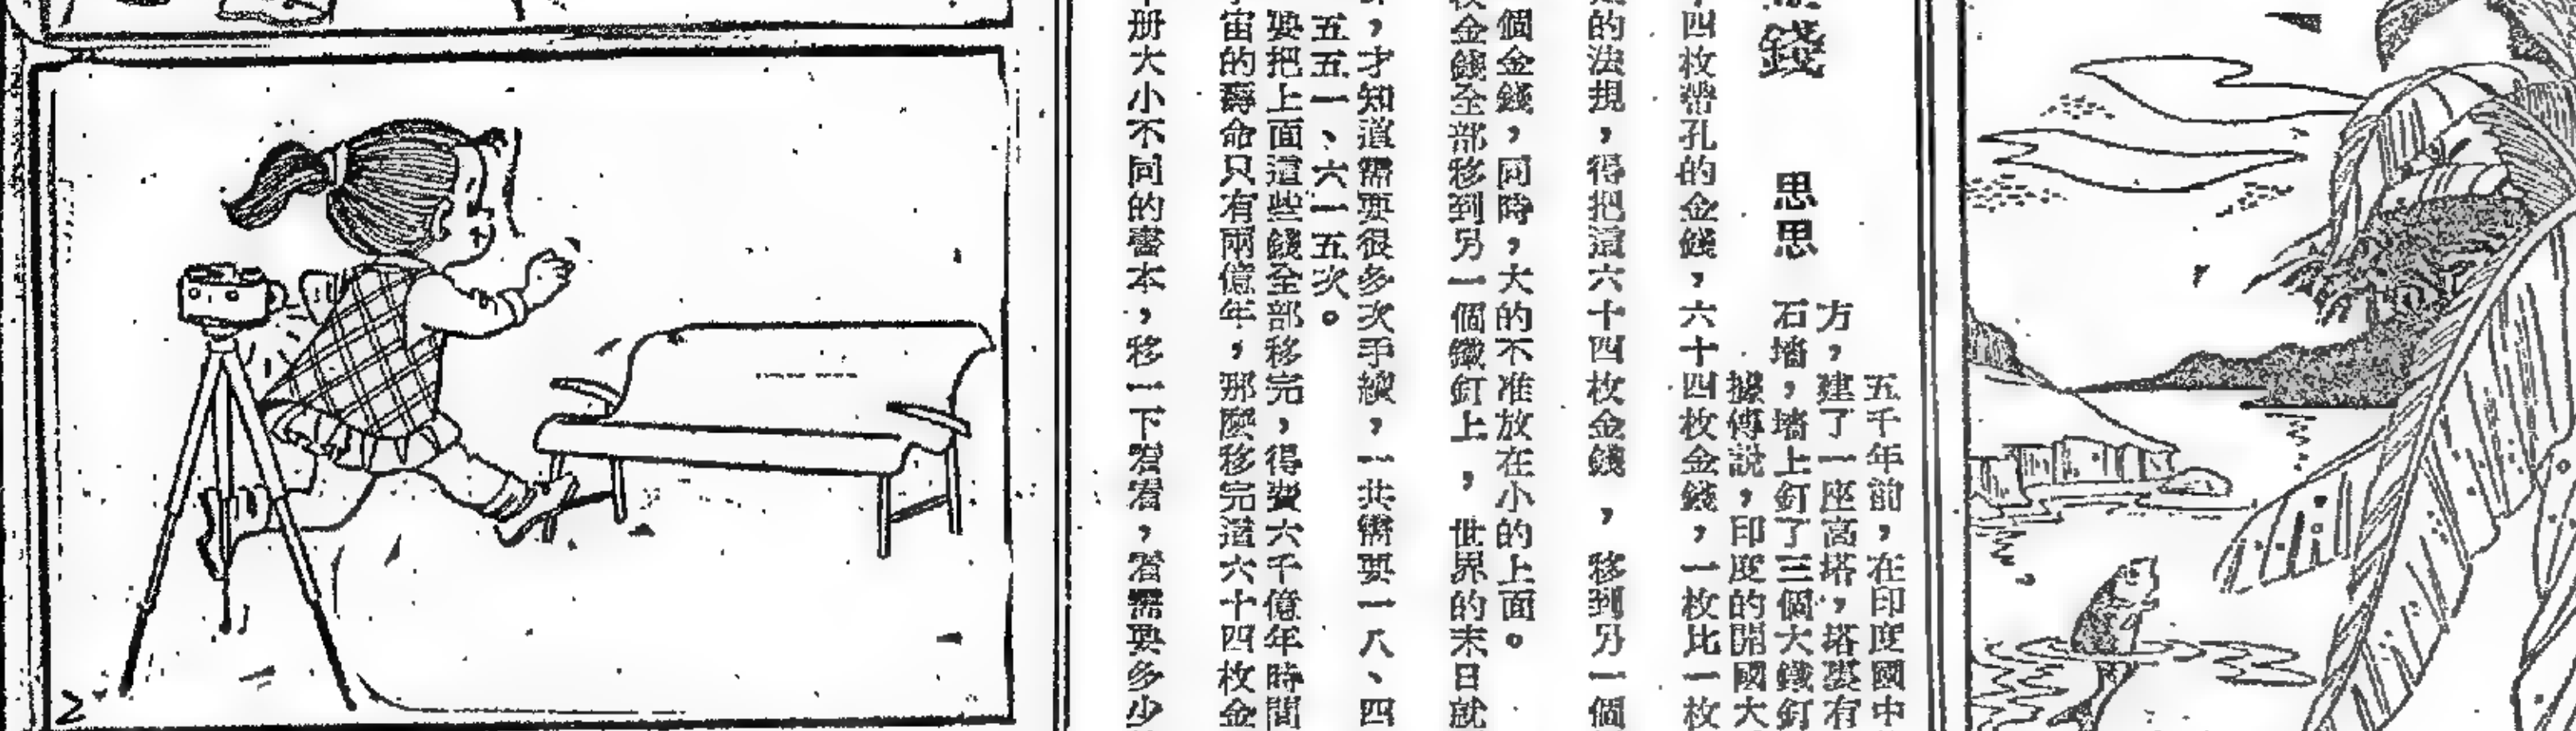 錢
思思
五千年前，在印度國中
方，建了一座高塔，塔裏有
石墻，墻上釘了三個大鐵釘
據傳說，印度的開國大
四枚帶孔的金錢，六十四枚金錢，一枚比一枚
的法規，得把這六十四枚金錢，移到另一個
個金錢，同時，大的不准放在小的上面。
金錢全部移到另一個鐵釘上，世界的末日就
，才知道需要很多次手續，一共需要一八、四
五五一、六一五次。
要把上面這些錢全部移完，得費六千億年時間
宙的壽命只有兩億年，那麼移完這六十四枚金
册大小不同的書本，移一下看看，看需要多少
2